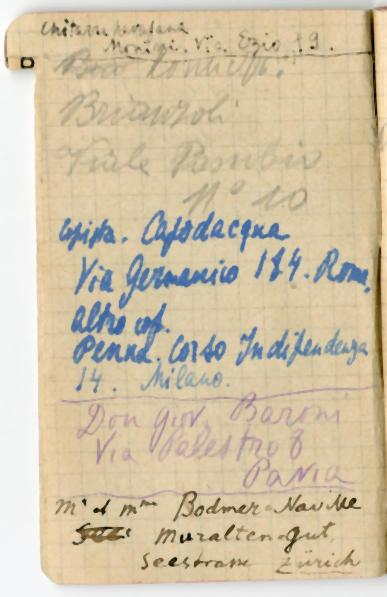 Chitarre hawaiana
Monizi. Via Ezio 19.
Brianzoli
Viale Pasubio
N° 10
copista. Capodacqua
Via Germanico 184. Roma,
altro cop.
Penna. Corso Indipendenza
14. Milano.
Don Giov. Baroni
Via Palestro 6
Pavia
Mr et Mme Bodmer-Naville
Muralten-gut,
Seestrasse Zürich